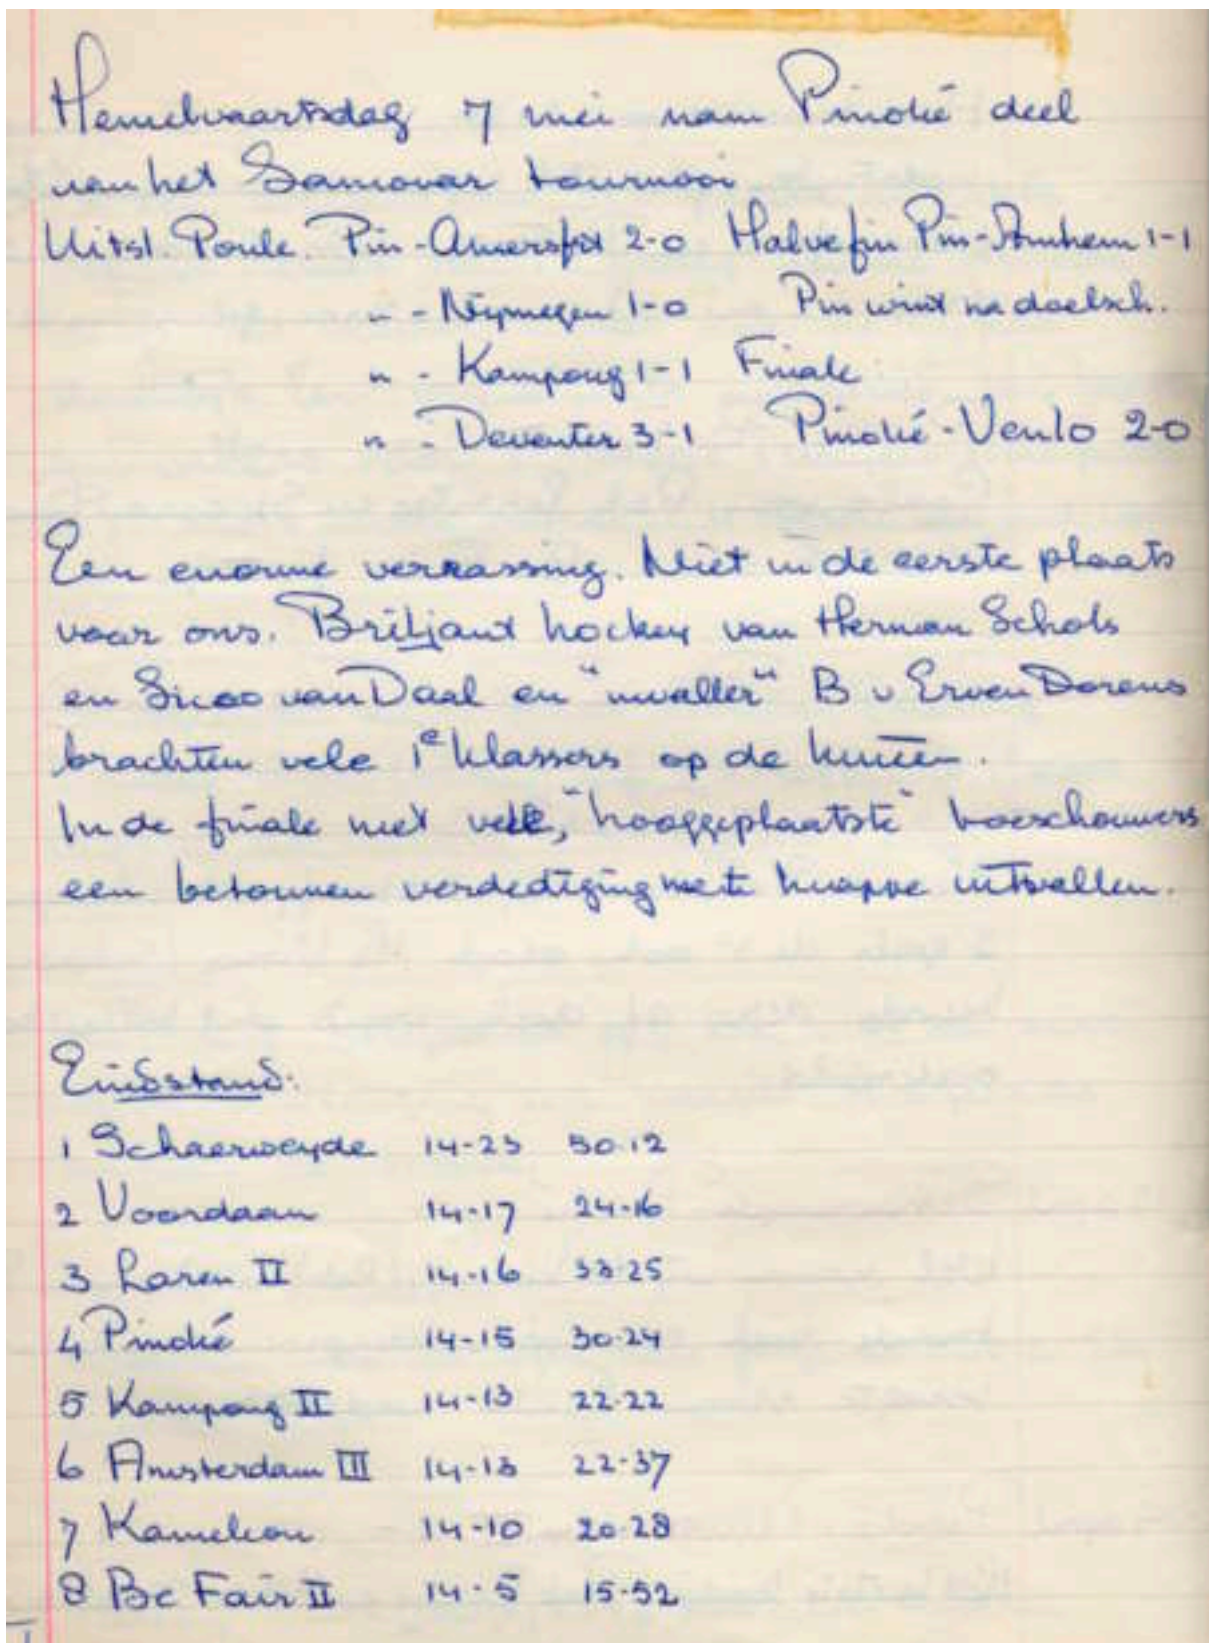 Hemelvaartsdag 7 mei nam Pinoké deel
van het Samovar tournooi
Uitsl. Poule. Pin-Amersfrt 2-0 Halvefin Pin-Arnhem 1-1
" - Nijmegen 1-0 Pin wint na doelsch.
" - Kampong 1-1 Finale
" - Deventer 3-1 Pinoké-Venlo 2-0
Een enorme verrassing. Niet in de eerste plaats
voor ons. Briljant hockey van Herman Schols
en Sicco van Daal en "invaller" B v Erven Dorens
brachten vele 1e klassers op de knieën.
In de finale met vele, "hooggeplaatste" toeschouwers
een betonnen verdediging met knappe uitvallen.
Eindstand:
1 Schaerweyde 14-23 50-12
2 Voordaan 14-17 24-16
3 Laren II 14-16 33-25
4 Pinoké 14-15 30-24
5 Kampong II 14-13 22-22
6 Amsterdam III 14-13 22-37
7 Kameleon 14-10 20-28
8 Be Fair II 14-5 15-52